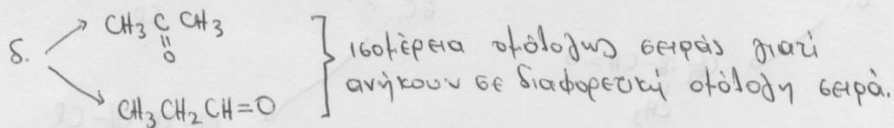 δ.
CH3 C CH3
=
O
CH3CH2CH=O
ισομέρεια ομόλογης σειράς γιατί
ανήκουν σε διαφορετική ομόλογη σειρά.